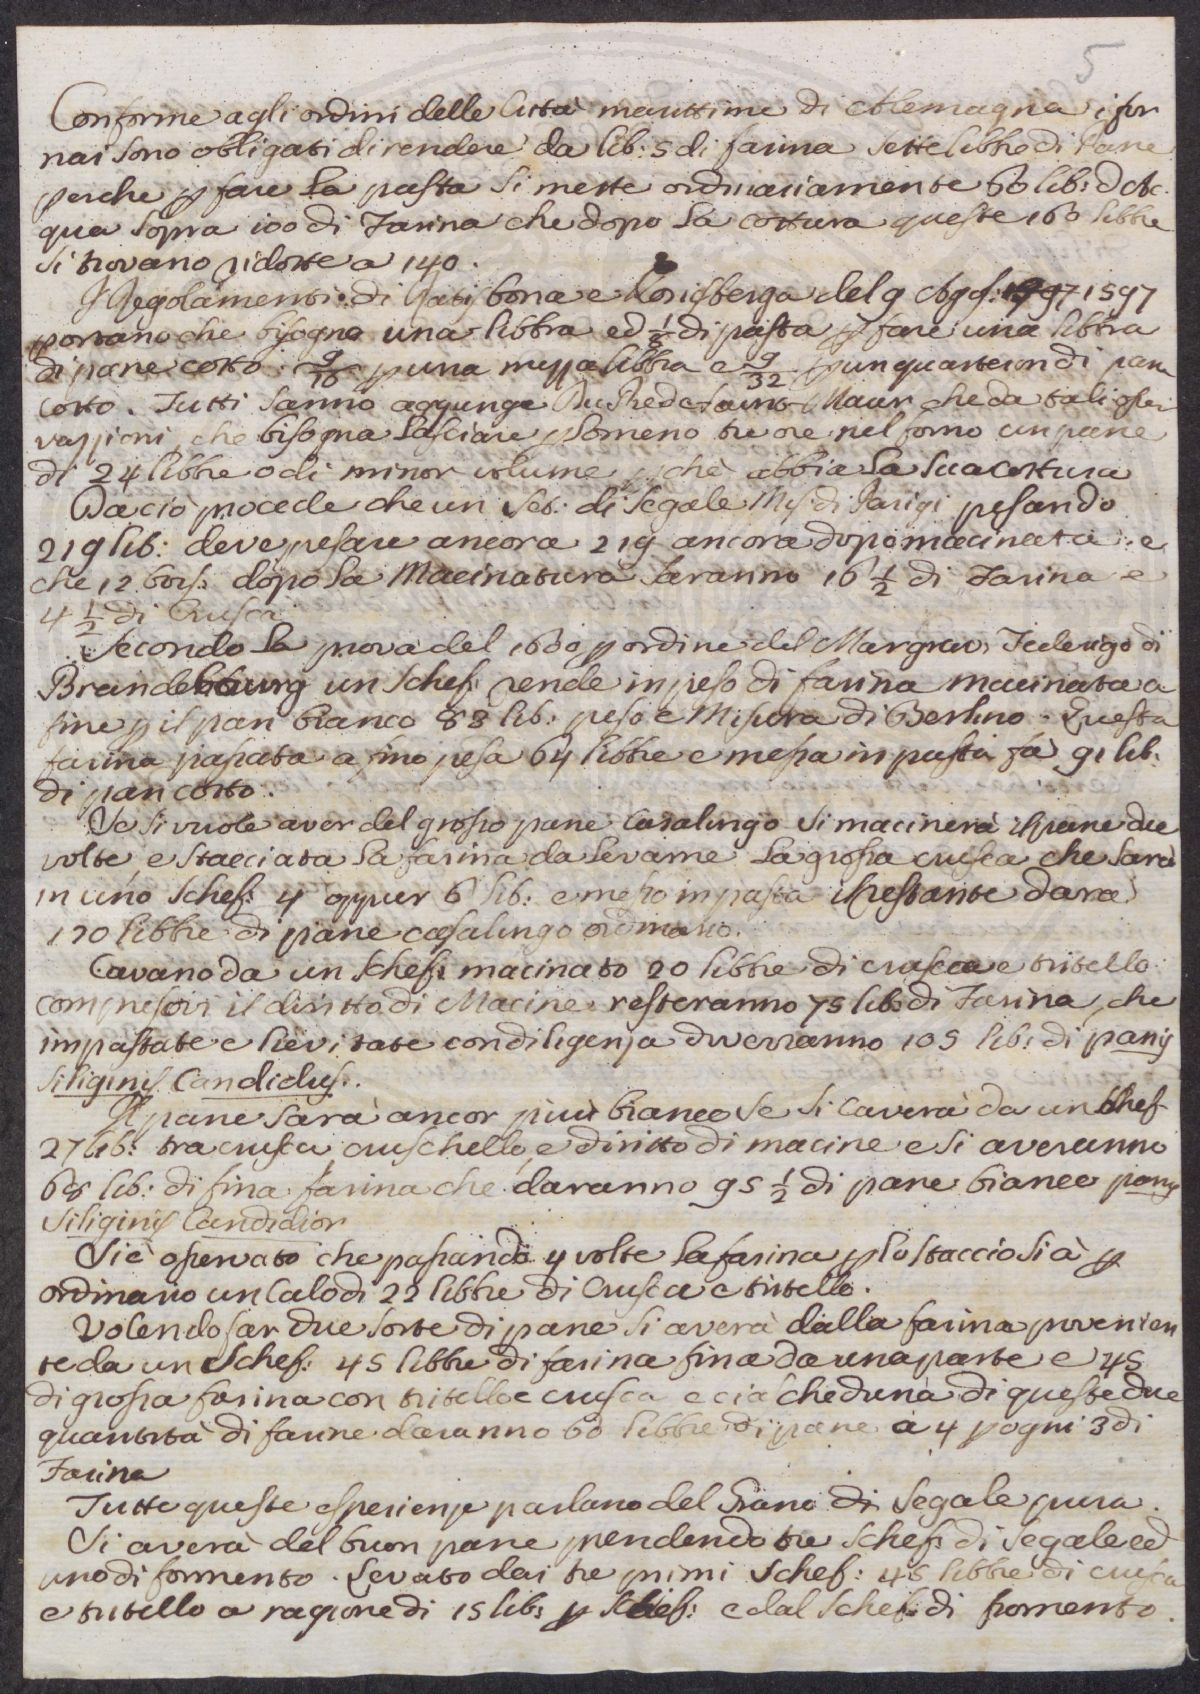 5
Conforme agli ordini delle Città marittime di Alemagna i for
nai sono obligati di rendere da lib: 5 di farina sette libbre di Pane
perche p fare la pasta si mette ordinariamente 60 lib: d'Ac.
qua sopra 100 di Farina che dopo la cottura queste 160 libbre
si trovano ridotte a 140.
I Regolamenti di Ratisbona e Konisberga del 9 Ag: 1597
portano che bisogna una libbra ed 1/8 di pasta p fare una libbra
di pane cotto. 9/16 p una mezza libbra e 9/32 p un quarteron di pane
cotto. Tutti sanno aggiunge Du Pred e Saint Maur che da tali osser
vazzioni, che bisogna lasciare p lomeno tre ore nel forno un pane
di 24 libbre o di minor volume, p chè abbia la sua cottura
Da ciò procede che un Set: di Segale Mis: di Parigi pesando
219 lib: deve pesare ancora 219 ancora dopo macinata: e
che 12 bois: dopo la Macinatura saranno 16 1/2 di Farina e
4 1/2 di Crusca
Secondo la prova del 1600 p ordine del Margrav: Federigo di
Brandebourg un Schef: rende in peso di farina macinata a
fine p il pan bianco 88 lib: peso e Misura di Berlino. Questa
farina passata a fino pesa 64 libbre e messa in pasta fà 91 lib:
di pan cotto.
Se si vuole aver del grosso pane casalingo si macinerà il pane due
volte e stacciata la farina da levarne la grossa crusca che sarà
in uno Schef: 4 oppur 6 lib: e messo in pasta il restante darà
120 libbre di pane casalingo ordinario.
Cavano da un Schef: macinato 20 libbre di crusca e tritello
compresovi il diritto di Macine resteranno 75 lib: di Farina, che
impastate e lievitate con diligenza diverranno 105 lib: di panis
siliginis Candidus.
Il pane sarà ancor più bianco se si caverà da un Schef
27 lib: tra crusca cruschello, e diritto di macine e si averanno
68 lib: di fina farina che daranno 95 1/2 di pane bianco panis
Siliginis Candidior
Si è osservato che passando 4 volte la farina p lo staccio si à p
ordinario un Calo di 22 libbre di Crusca e tritello.
Volendo far due sorte di pane si averà dalla farina provenien
te da un Schef: 45 libbre di farina fina da una parte e 45
di grossa farina con tritello e crusca e ciascheduna di queste due
quantità di farine daranno 60 libbre di pane a 4 p ogni 3 di
Farina
Tutte queste esperienze parlano del Grano di Segale pura.
Si averà del buon pane prendendo tre Schef: di Segale ed
uno di formento. Levato dai tre primi Schef: 45 libbre di crusca
e tritello a ragione di 15 lib: p Schef: e dal Schef: di fromento.